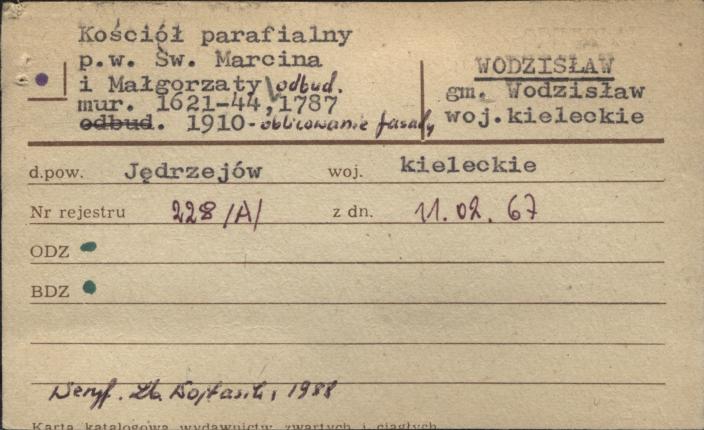 Kościół parafialny
p.w. Św. Marcina
i Małgorzaty odbud.
mur. 1621-44, 1787
odbud. 1910 - oblicowanie fasady
WODZISŁAW
gm. Wodzisław
woj.kieleckie
d.pow. Jędrzejów woj. kieleckie
Nr rejestru 228/A/ z dn. 11.02.67
ODZ
BDZ
Weryf. Zb. Wojtasik, 1988
Karta katalogowa wydawnictw zwartych i ciągłych